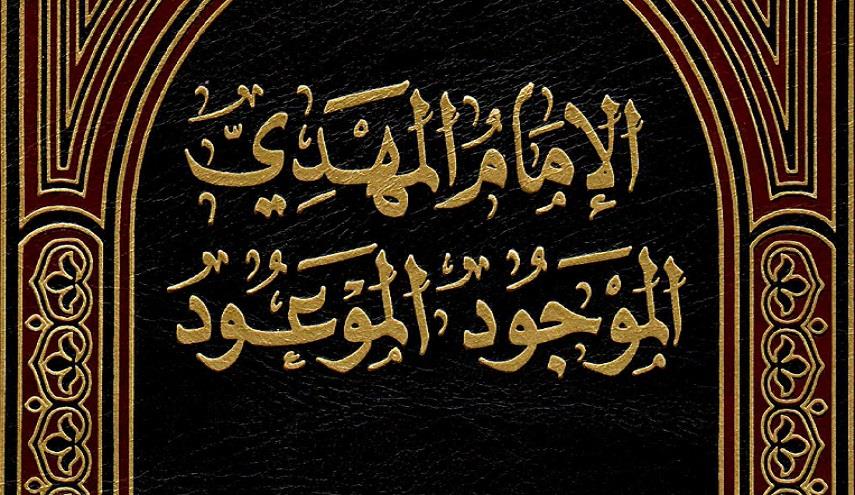 الإِمَامُ المَهْدِيُّ
المَوْجُودُ المَوْعُودُ